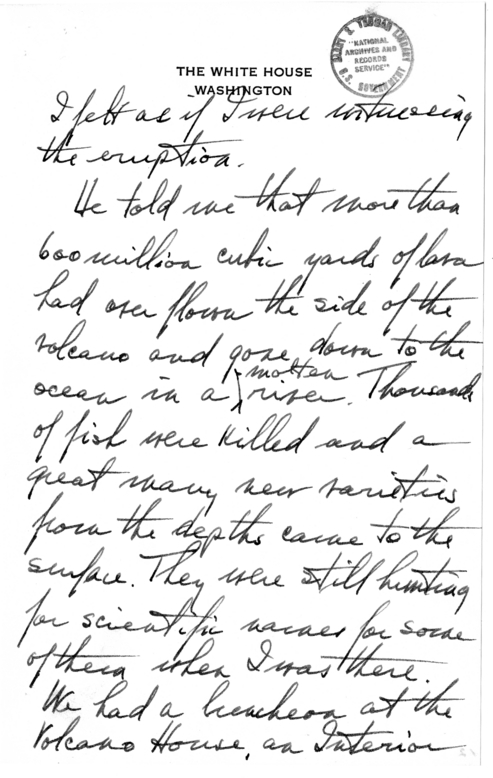 HARRY S. TRUMAN LIBRARY
"NATIONAL
ARCHIVES AND
RECORDS
SERVICE"
U.S. GOVERNMENT
THE WHITE HOUSE
WASHINGTON
I felt as if I were witnessing
the eruption.
He told me that more than
600 million cubic yards of lava
had over flown the side of the
volcano and gone down to the
molten
ocean in a river. Thousands
of fish were killed and a
great many new varieties
from the depths came to the
surface. They were still hunting
for scientific names for some
of them when I was there.
We had a luncheon at the
Volcano House, an Interior